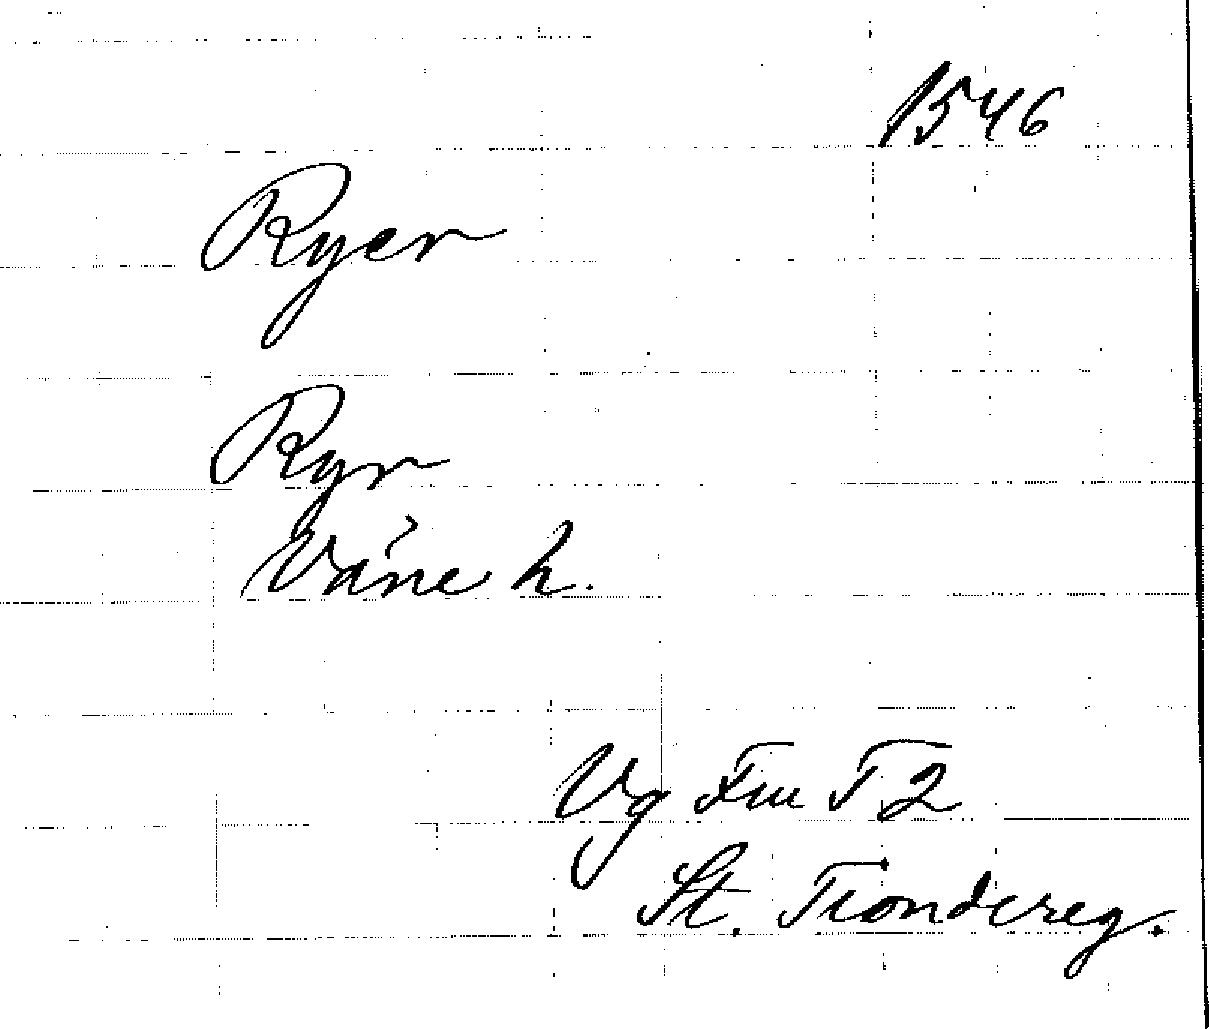 1546
Ryer
Ryr
Våne h.
Vg Fm T 2
St. Tiondereg.